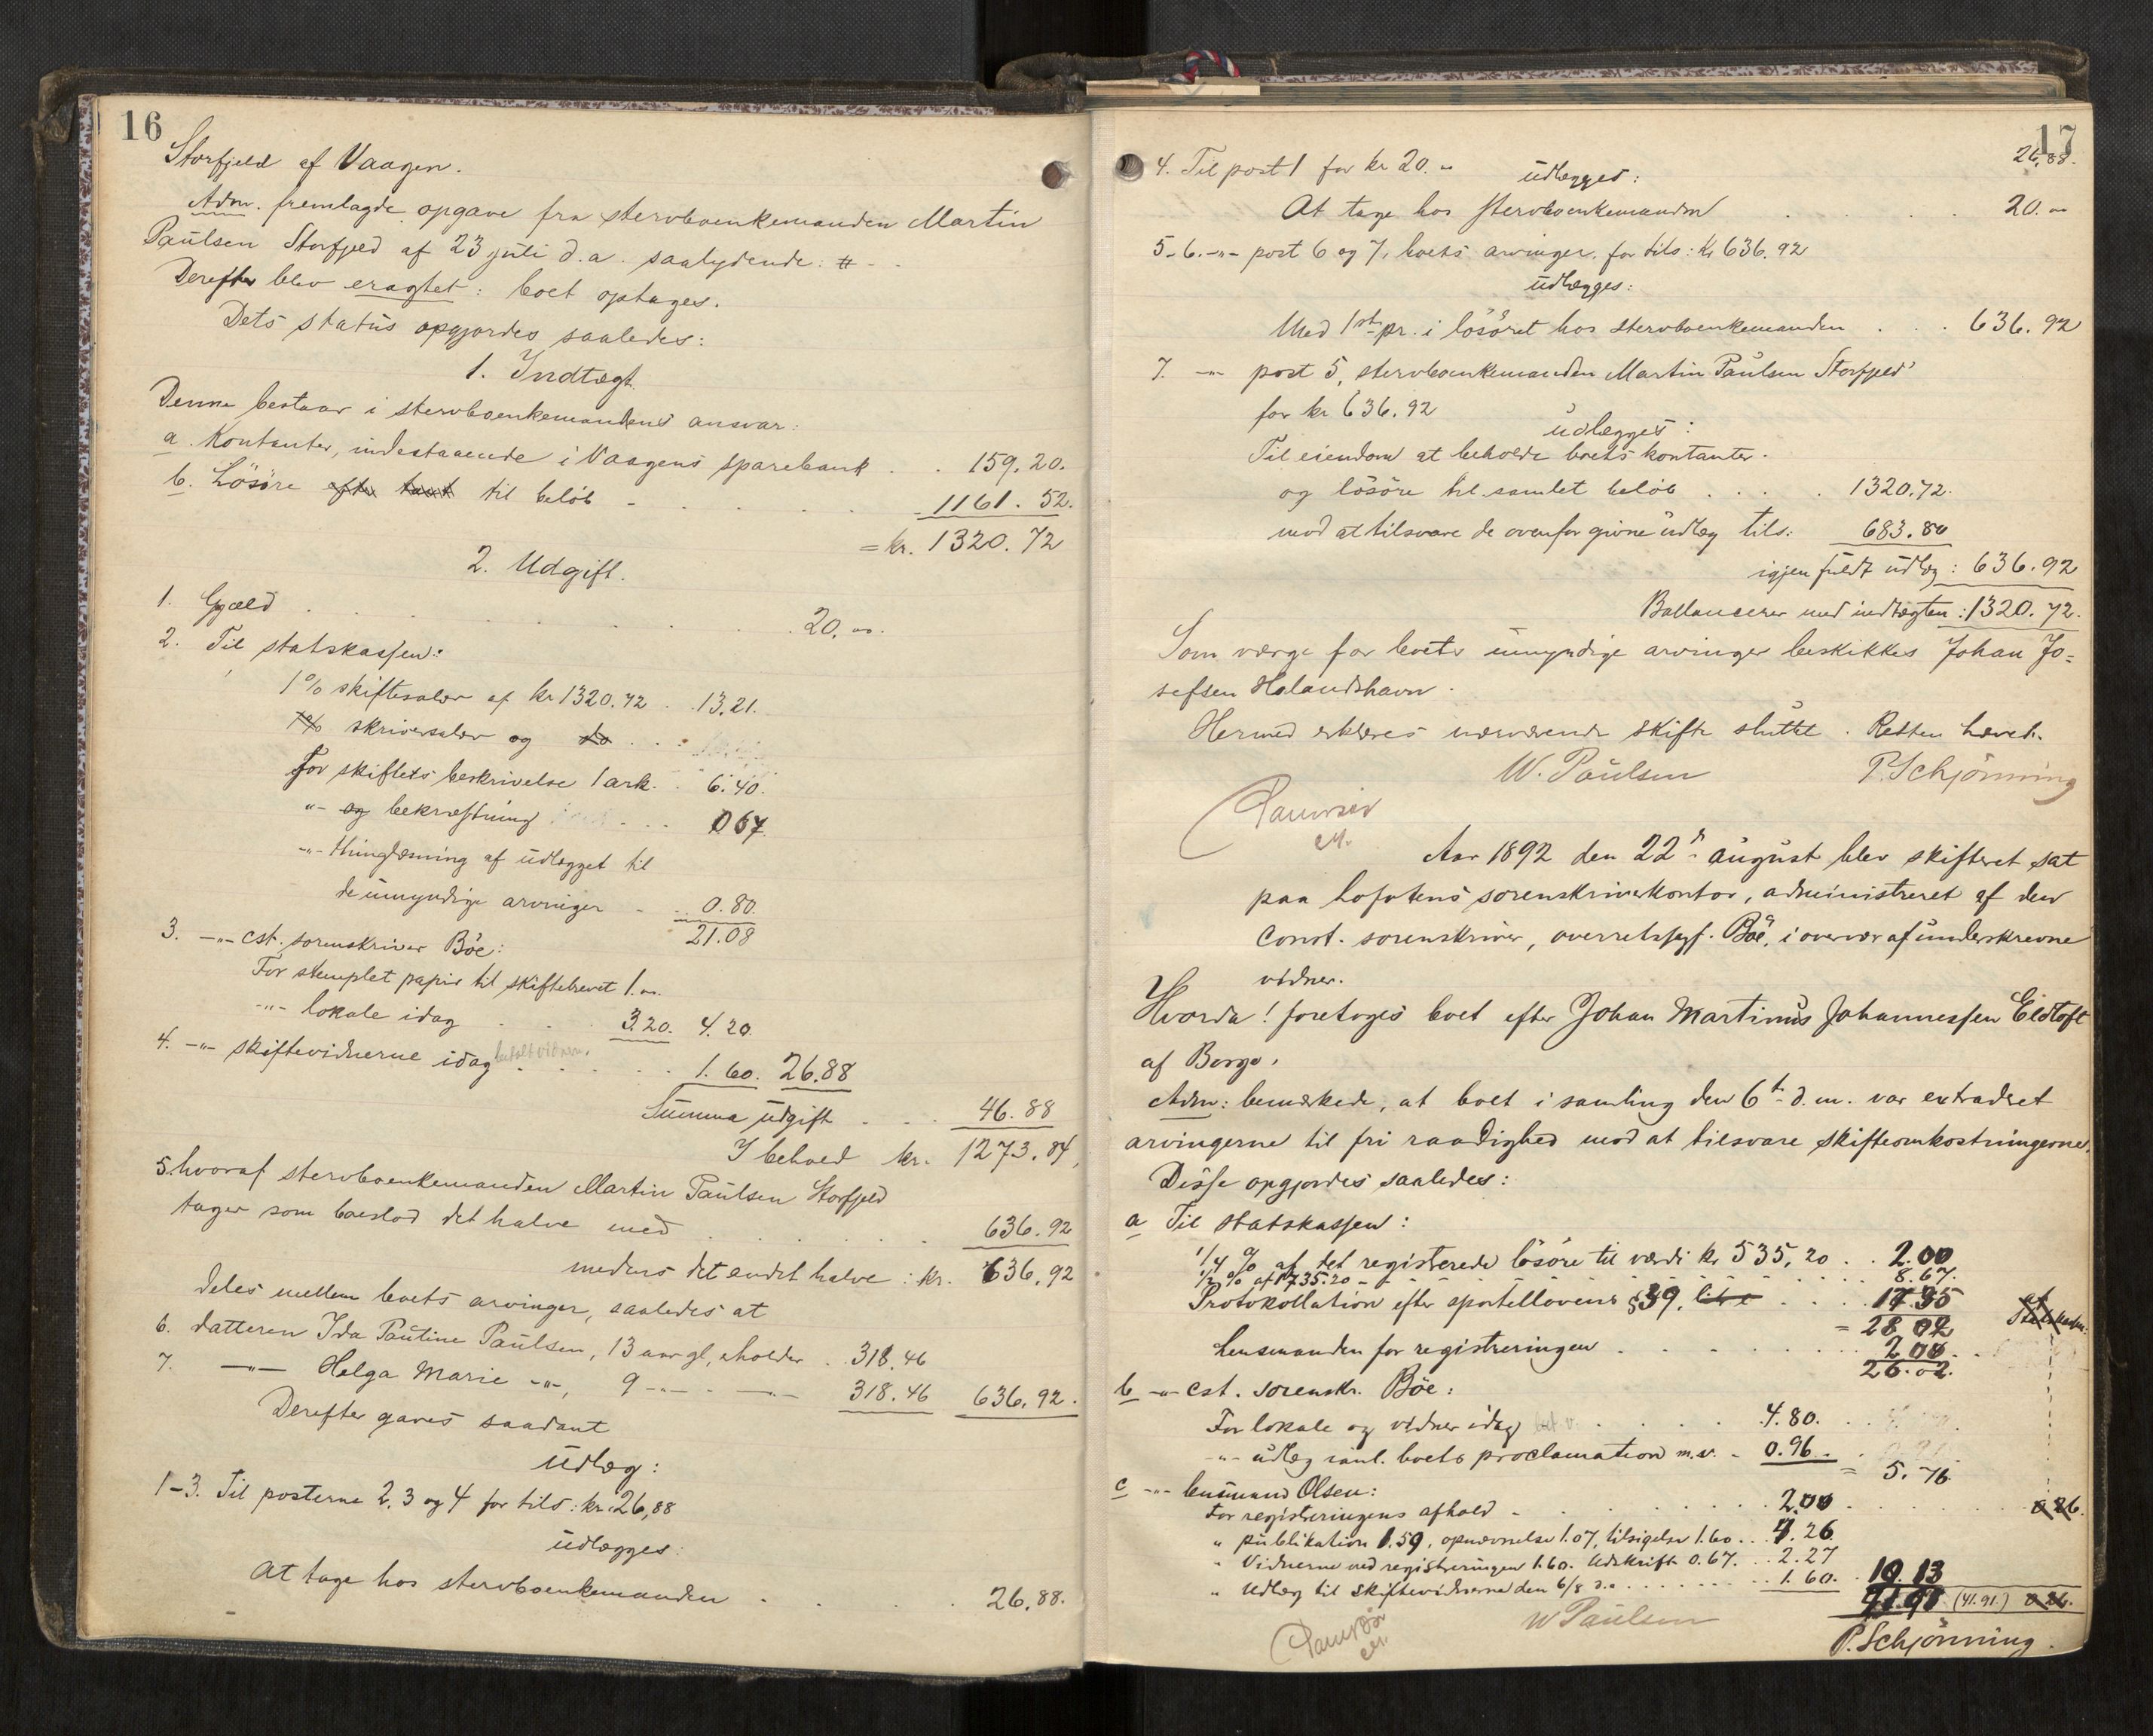 16
Storfjeld af Vaagen.
Adm. fremlagde opgave fra stervboenkemanden Martin
Paulsen Storfjeld af 23 juli d.a. saalydende: #
Derefter blev eragtet: boet optages.
Dets status opgjordes saaledes:
1. Indtægt
Denne bestaar i stervboenkemandens ansvar:
a. Kontanter, indestaaende i Vaagens sparebank . . 159.20.
b. Lösöre efter taxt til beløb - . . . . 1161.52.
= kr. 1320.72
2. Udgift.
1. Gjæld . . . . . . 20.00.
2. Til statskassen:
1% skiftesalær af kr 1320.72 . . 13.21.
1% skriversalær og do . . .
For skiftets beskrivelse 1 ark. . 6.40.
"- og bekræftning . . . 0 67
-"- thinglæsning af udlægget til
de umyndige arvinger - . . 0.80.
21.08
3. -"- cst. sorenskriver Böe:
For stemplet papir til skiftebrevet 1.00.
-"- lokale idag . . . 3.20. 4.20.
4. -"- skiftevidnerne idag betalt vidnern. . . . . 1.60. 26.88
Summa udgift . . . 46.88
I behold kr. 1273.84,
5. hvoraf stervboenkemanden Martin Paulsen Storfjeld
tager som boeslod det halve med . . . . . 636.92
medens det andet halve: kr. 636.92
deles mellem boets arvinger, saaledes at
6. datteren Ida Pauline Paulsen, 13 aar gl, erholder . . 318.46
7. -"- Helga Marie -"-, 9 -"- . -"- 318.46 636.92.
Derefter gaves saadant
Udlæg:
1-3. Til posterne 2, 3 og 4 for tils: kr. 26,88
udlægges:
At tage hos stervboenkemanden . . . . 26.88.
17
26,88.
4. Til post 1 for kr 20.00
udlægges:
At tage hos stervboenkemanden . . . . . 20.00
5-6. -"- post 6 og 7, boets arvinger, for tils: kr 636.92
udlægges:
Med 1ste pr. i lösöret hos stervboenkemanden . . . 636.92
7. -"- post 5, stervboenkemanden Martin Paulsen Storfjeld
for kr 636.92
udlægges:
Til eiendom at beholde boets kontanter
og lösöre til samlet beløb . . . . 1320.72.
mod at tilsvare de ovenfor givne udlæg tils: 683.80
igjen fuldt udlæg: 636.92
Ballancerer med indtægten: 1320.72.
Som værge for boets umyndige arvinger beskikkes Johan Jo=
sefsen Holandshavn.
Hermed erklæres nærværende skifte sluttet. Retten hævet.
W. Paulsen P. Schjönning
Aar 1892 den 22de august blev skifteret sat
paa Lofotens sorenskriverkontor, administreret af den
const. sorenskriver, overretssagf. Böe, i overvær af underskrevne
vidner.
Hvorda! foretoges boet efter Johan Martinus Johannessen Eidtoft
af Borge.
Adm: bemærkede, at boet i samling den 6te d.m. var extraderet
arvingerne til fri raadighed mod at tilsvare skifteomkostningerne.
Disse opgjordes saaledes:
a Til statskassen:
1/4 % af det registrerede lösöre til værdi kr 535,20 . . 2.00
1/2 % af 1735.20 - - - . . . . 8.67.
Protokollation efter sportellovens §39, litr e . . . 17.35
= 28 02
Lensmanden for registreringen . . . . . . 2 00 . .
26.02.
b -"- cst. sorenskr. Böe:
For lokale og vidner idag . . . . . 4.80. . .
-"- udlæg saml. boets proclamation m.v. - 0.96 - .
= 5.76
c -"- lensmand Olsen:
For registreringens afhold - . . . . . 2.00 . . . . 0 86.
" publikation 1.59, opnævnelse 1.07, tilsigelse 1.60 . . . 4.26
" Vidnerne ved registreringen 1.60. Udskrift 0.67. . . 2.27
" Udlæg til skiftevidnerne den 6/8 d.a. . . . . . . 1.60. . 10.13
41.91 (41.91.) 0.86.
W Paulsen
P. Schjönning.